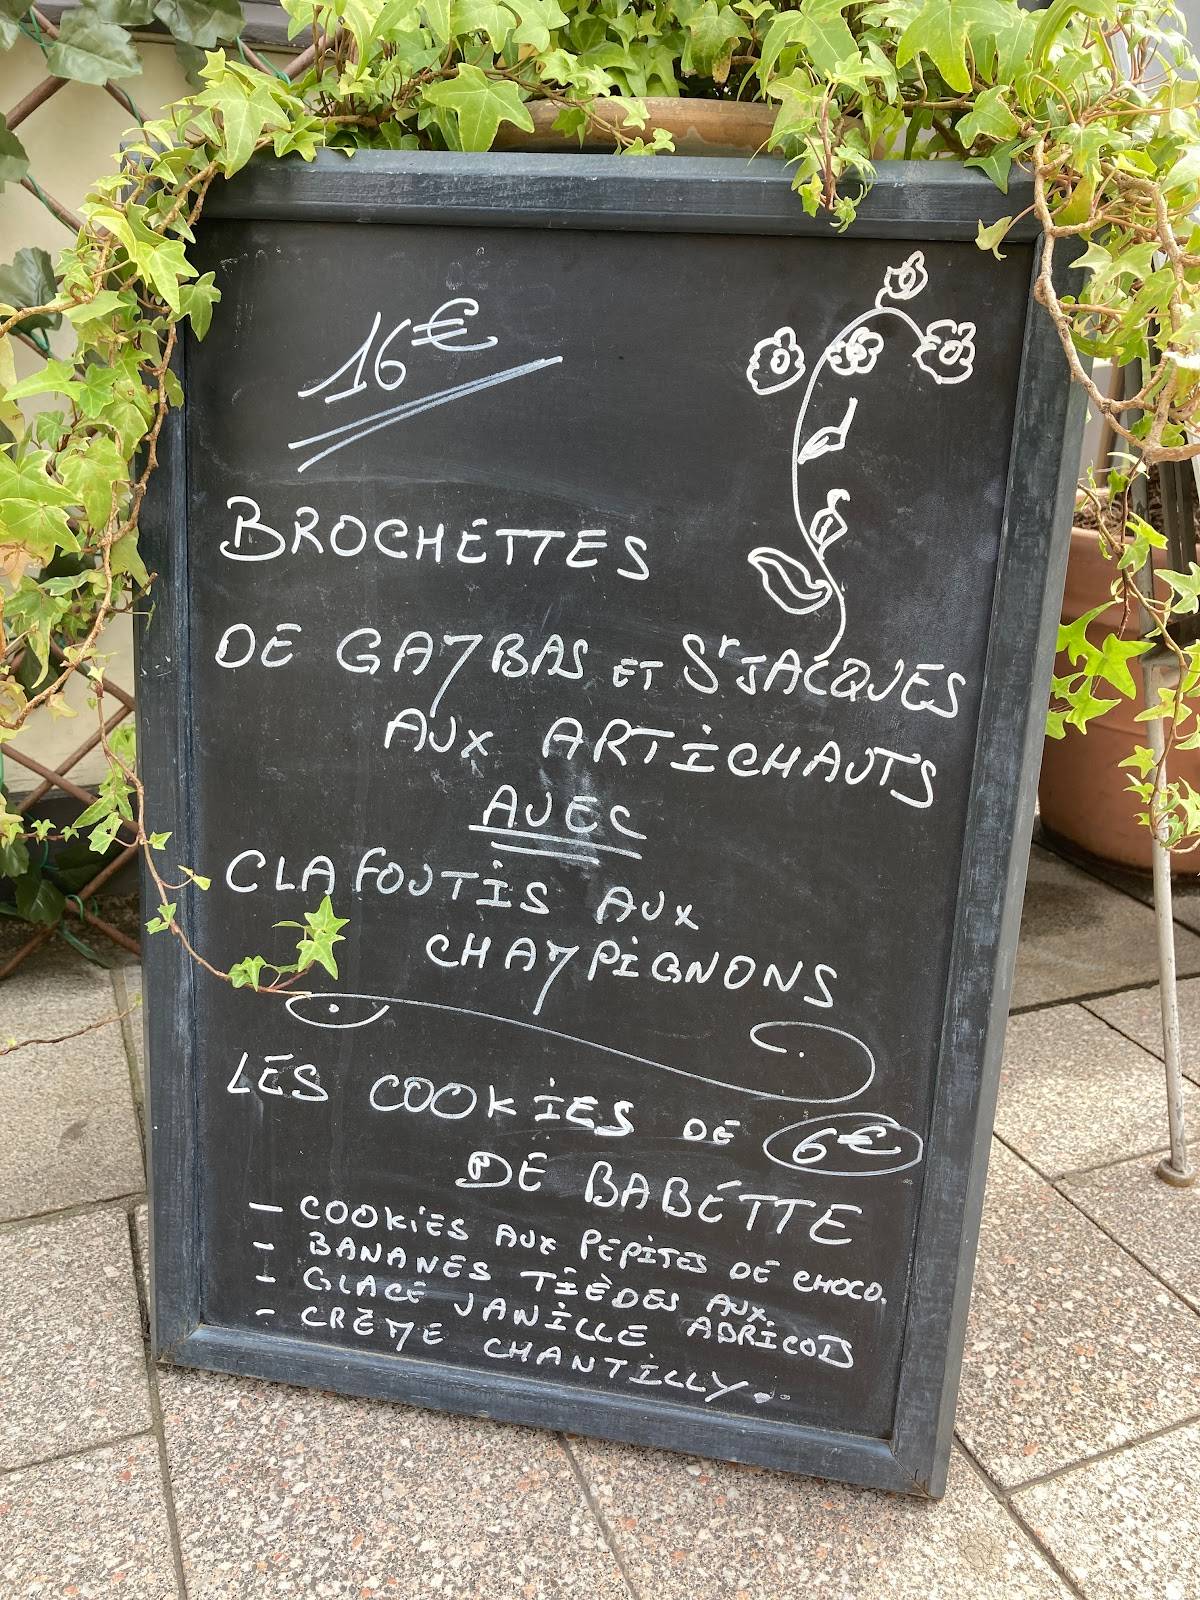 16€
BROCHETTES
DE GAMBAS ET St JACQUES
AUX ARTICHAUTS
AVEC
CLAFOUTIS AUX
CHAMPIGNONS
LES COOKIES DE 6€
DE BABETTE
- COOKIES AUX PEPITES DE CHOCO.
- BANANES TIÈDES AUX ABRICOTS
- GLACE VANILLE
- CRÈME CHANTILLY.